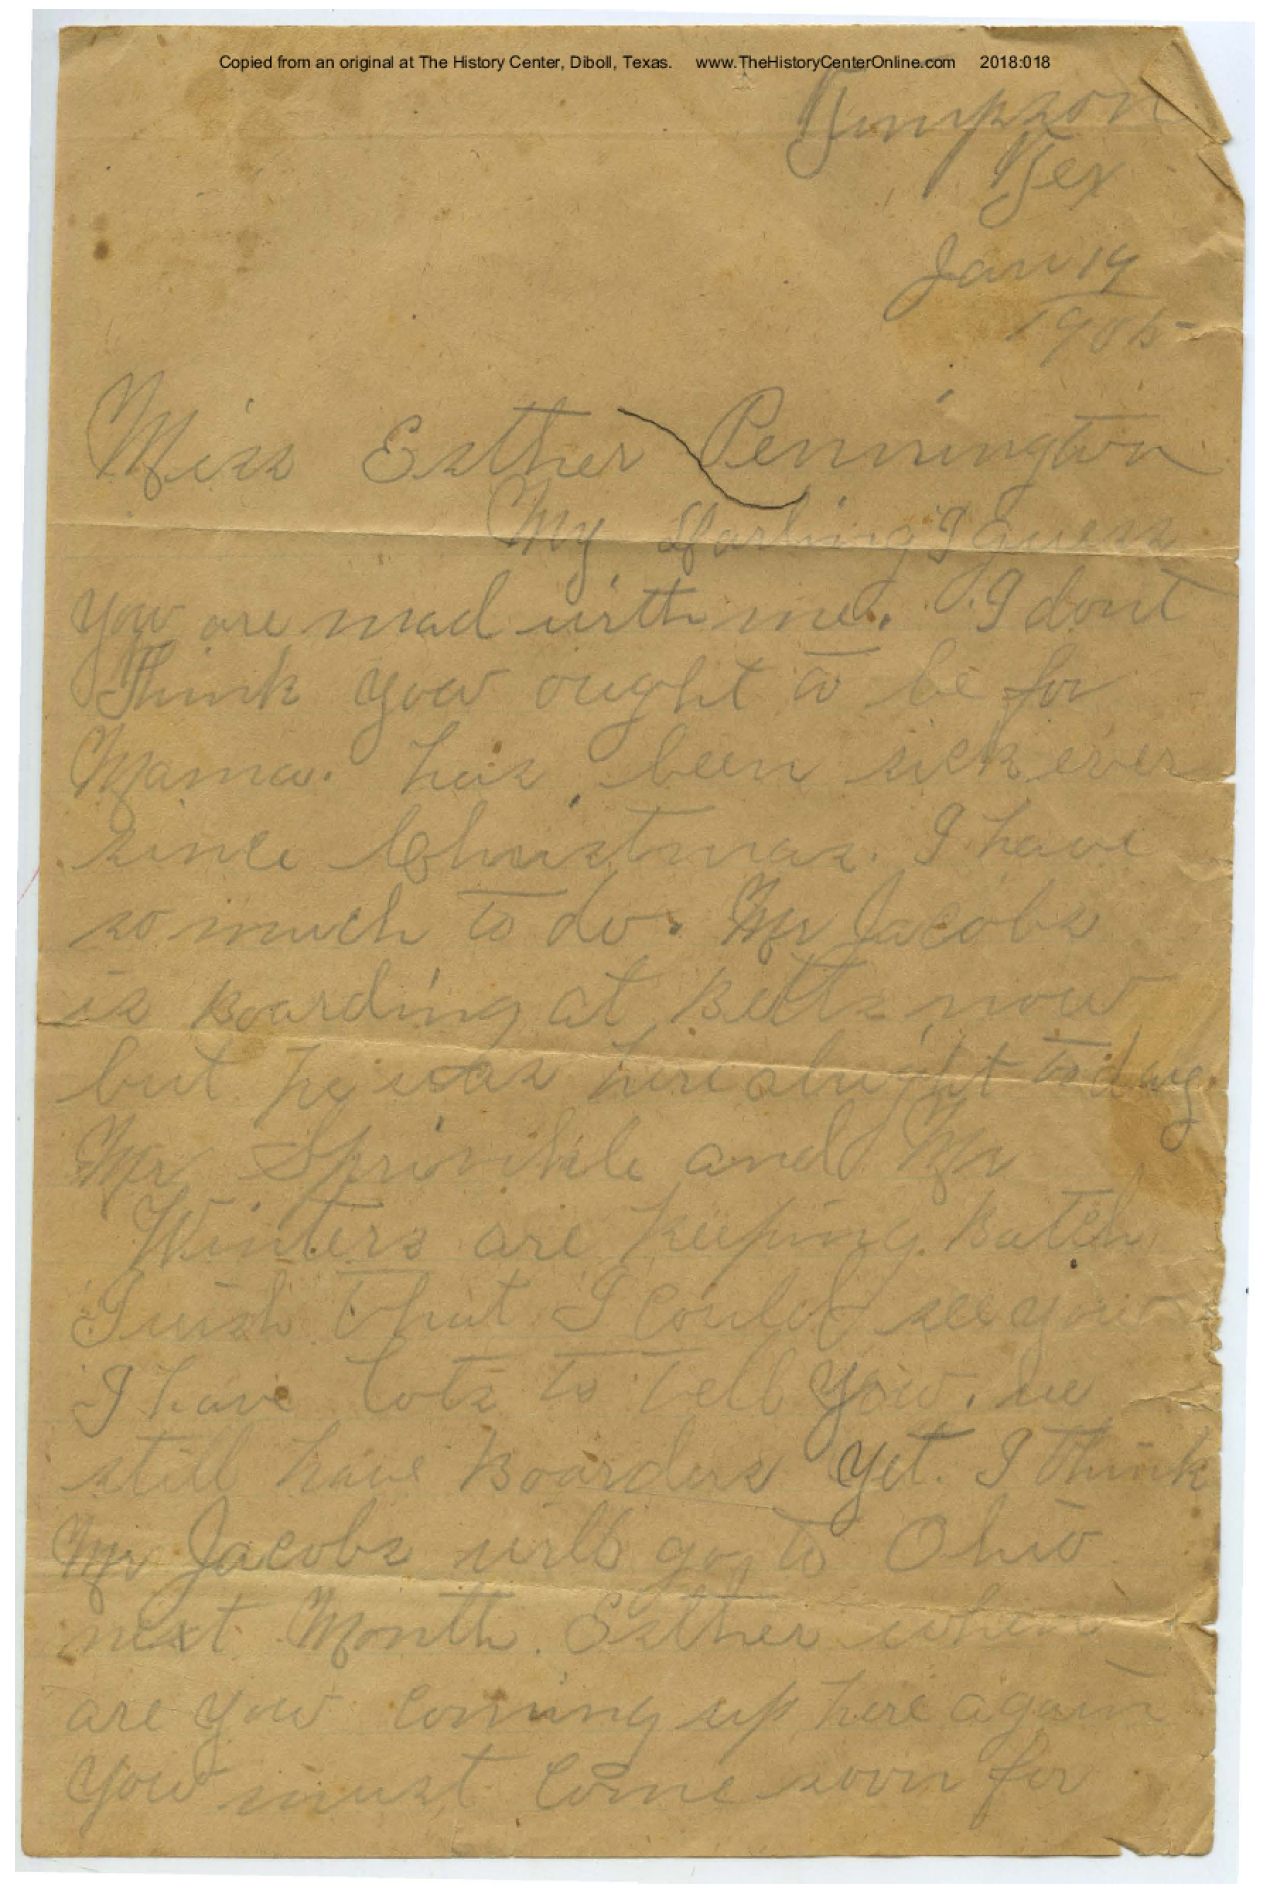 Copied from an original at The History Center, Diboll, Texas. www.TheHistoryCenterOnline.com 2018:018
Timpson
Tex
Jan 19
1905
Miss Esther Pennington
My Darling I guess
you are mad with me. I dont
Think you ought to be for
Mama. has been sick ever
since Christmas. I have
so much to do. Mr Jacobs
is Boarding at Betts now
but he was here to day
Mr Sprinkle and Mr
Winters are keeping Batch
I wish that I could see you
I have lots to tell you. we
still have Boarders yet. I Think
Mr Jacobs will go to Ohio
next Month. Esther when
are you coming up here again
you must come soon for